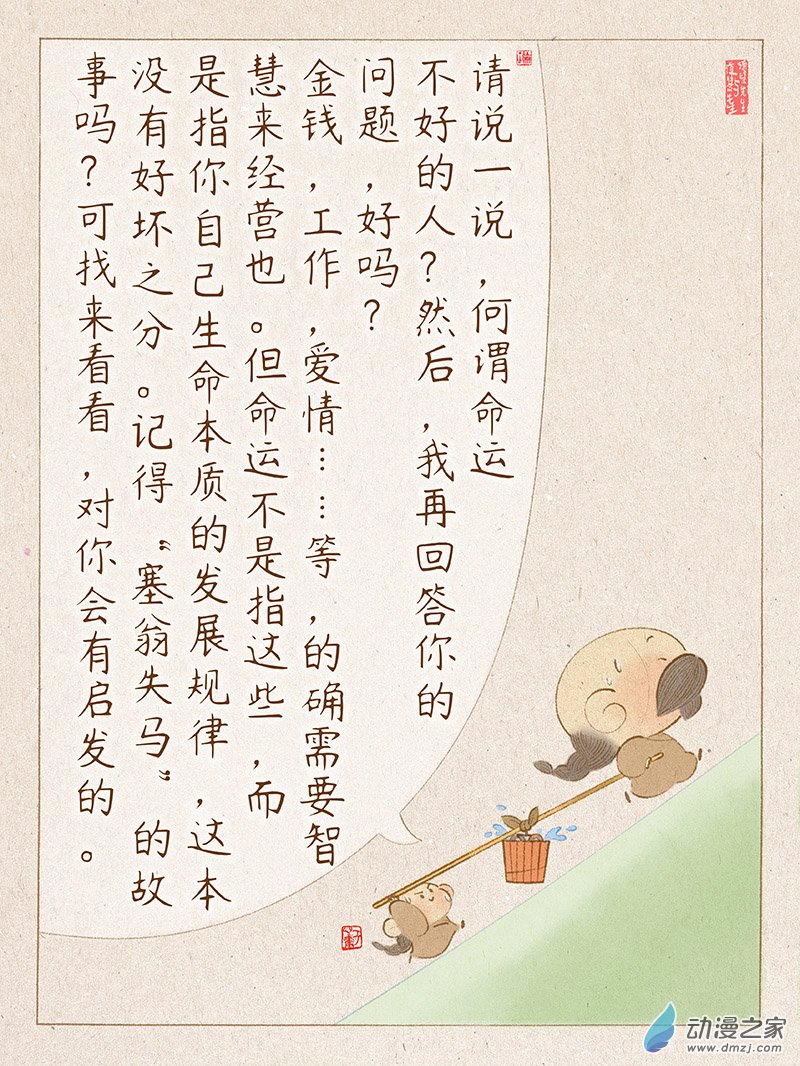 请说一说，何谓命运
不好的人？然后，我再回答你的
问题，好吗？
金钱，工作，爱情……等，的确需要智
慧来经营也。但命运不是指这些，而
是指你自己生命本质的发展规律，这本
没有好坏之分。记得“塞翁失马”的故
事吗？可找来看看，对你会有启发的。
动漫之家
www.dmzj.com